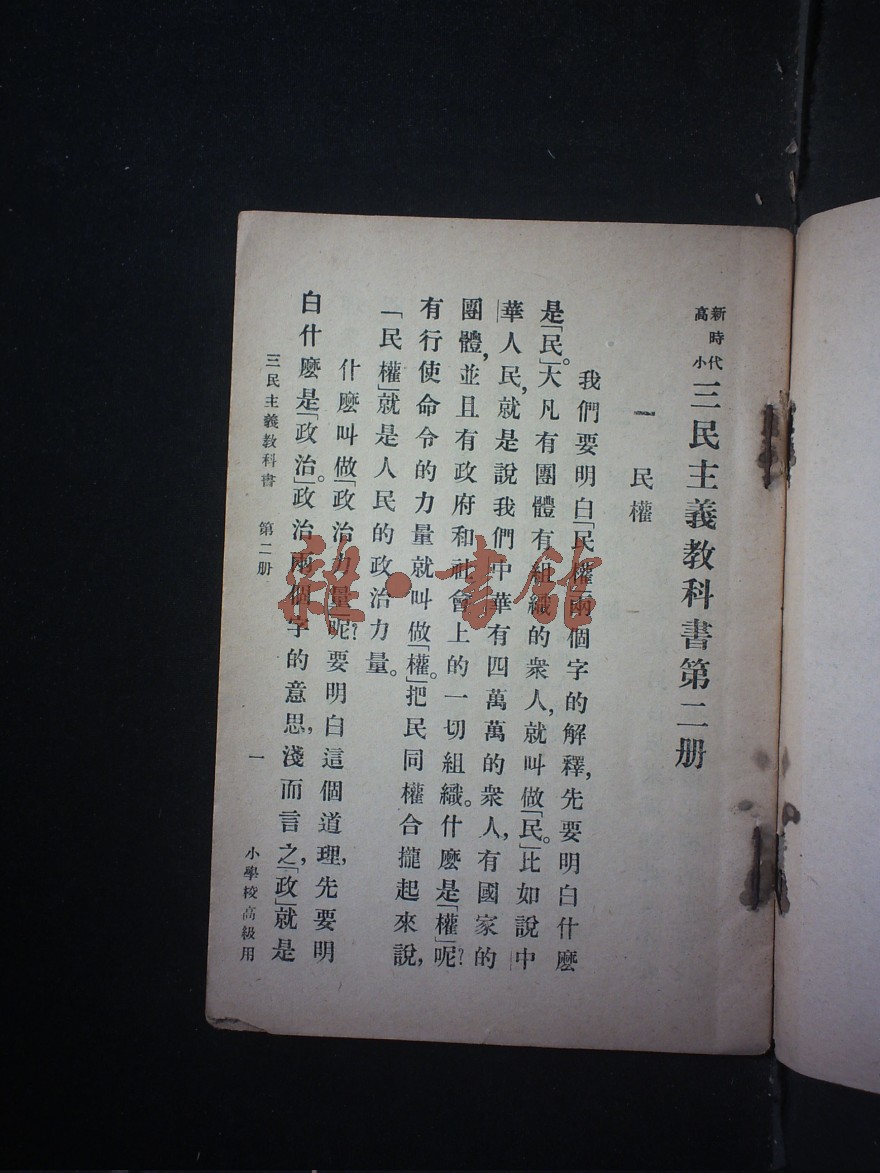 新時代
高小
三民主義教科書第二册
一 民權
我們要明白「民權」兩個字的解釋,先要明白什麽
是「民」。大凡有團體有組織的衆人,就叫做「民」。比如說中
華人民,就是說我們中華有四萬萬的衆人,有國家的
團體,並且有政府和社會上的一切組織。什麽是「權」呢?
有行使命令的力量就叫做「權」。把民同權合攏起來說,
「民權」就是人民的政治力量。
什麽叫做「政治力量」呢?要明白這個道理,先要明
白什麽是「政治」。政治兩個字的意思,淺而言之,「政」就是
三民主義教科書 第二册 一 小學校高級用
雜·書館